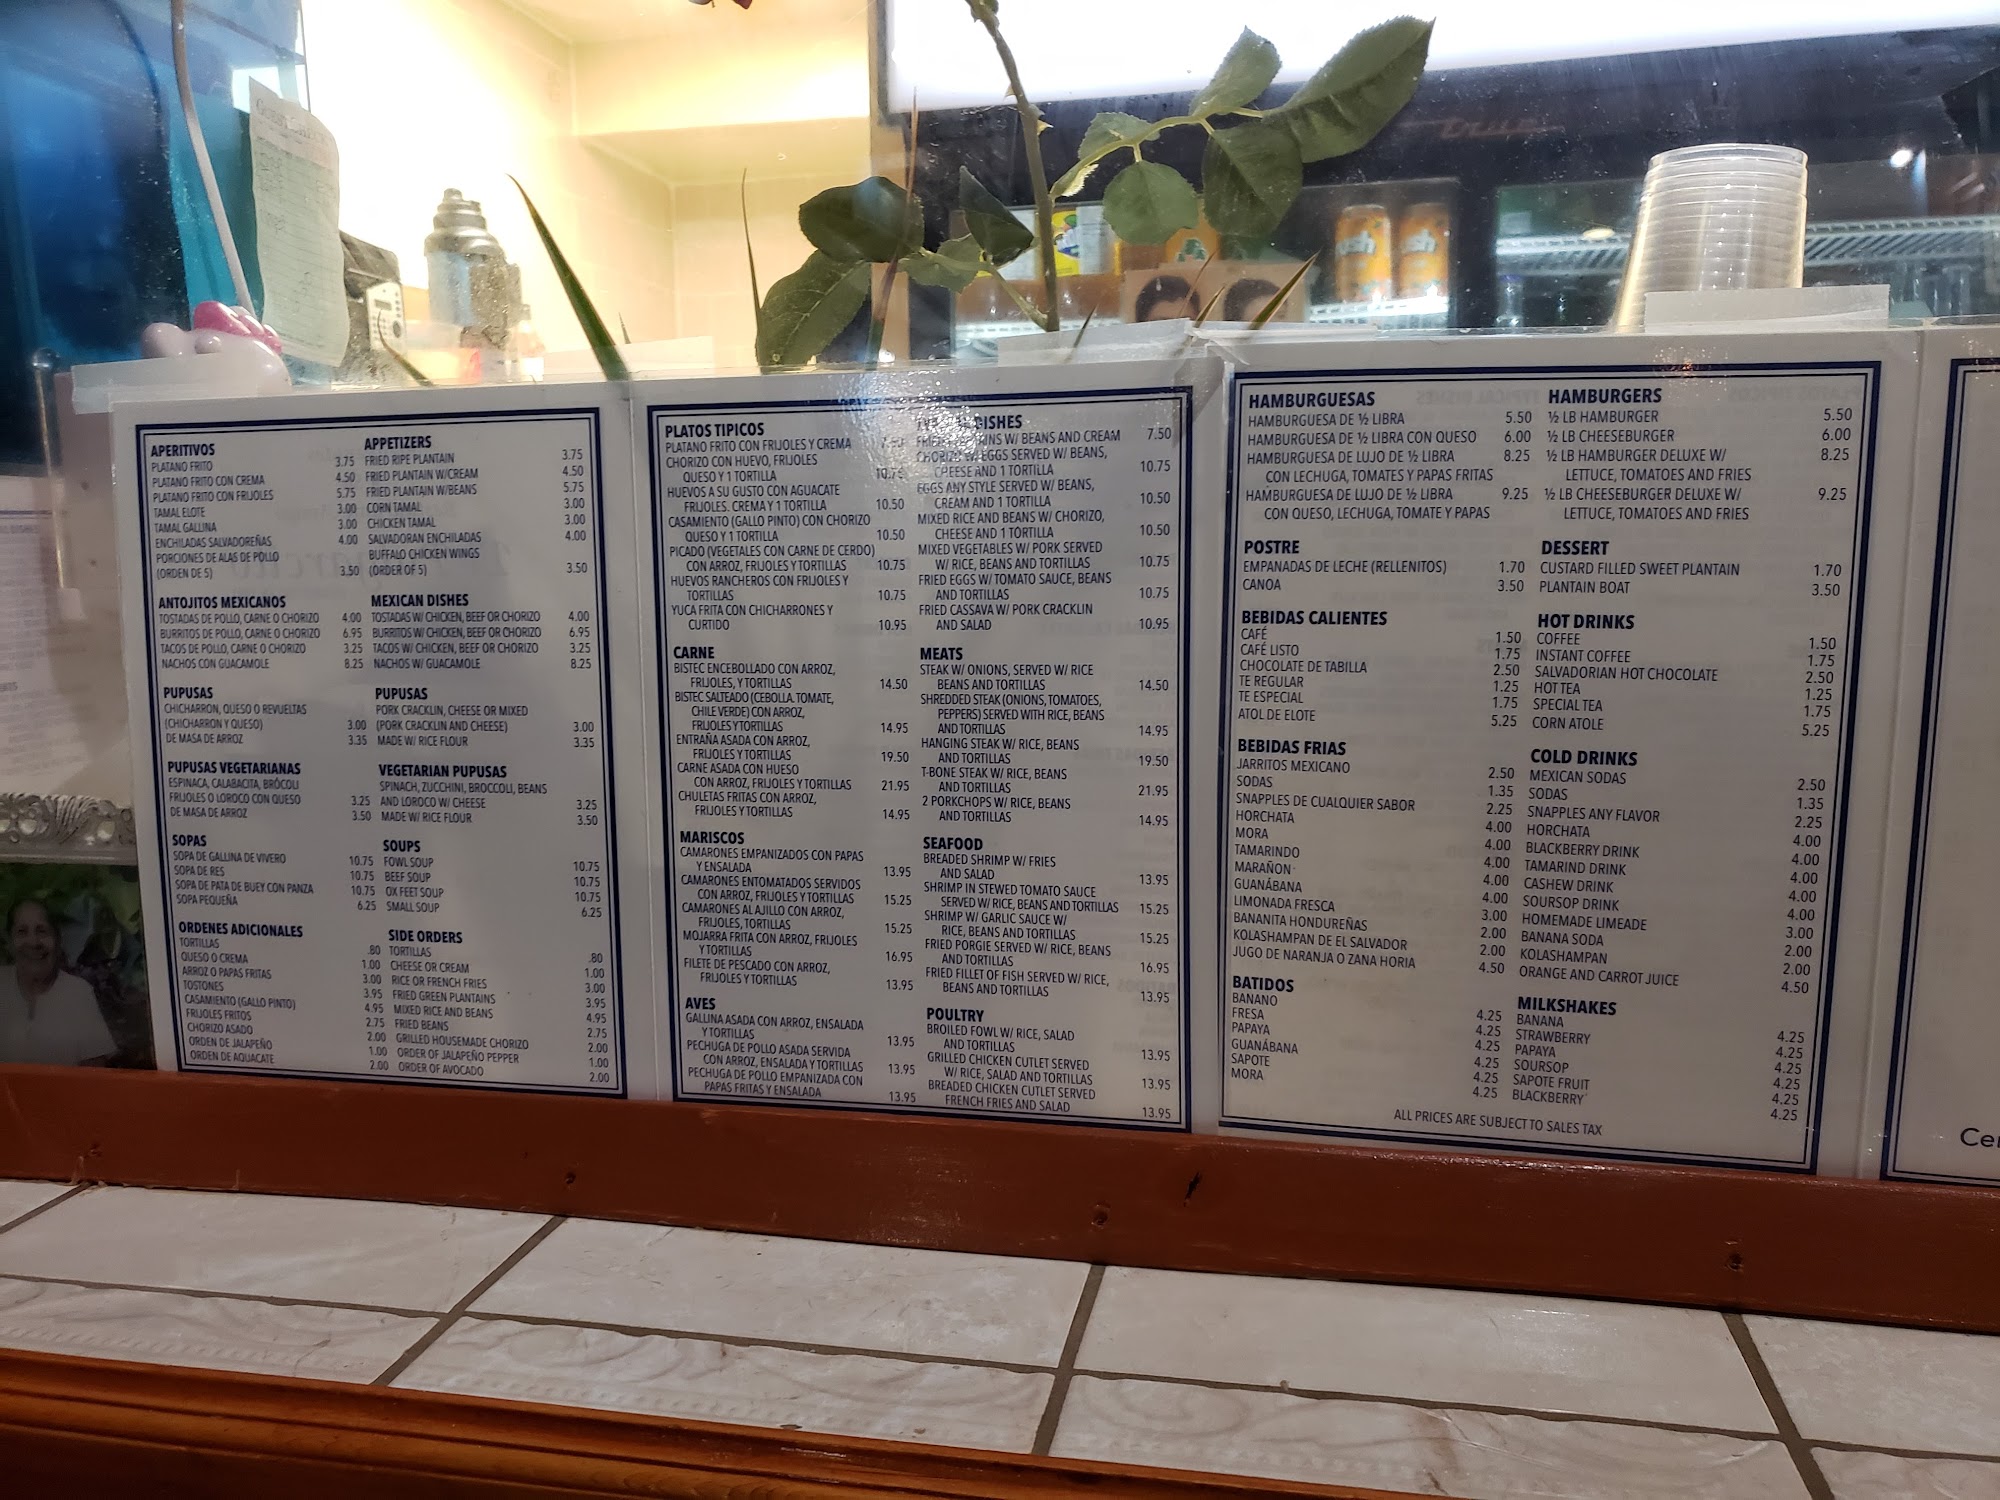 APERITIVOS
PLATANO FRITO 3.75
PLATANO FRITO CON CREMA 4.50
PLATANO FRITO CON FRIJOLES 5.75
TAMAL ELOTE 3.00
TAMAL GALLINA 3.00
ENCHILADAS SALVADOREÑAS 4.00
PORCIONES DE ALAS DE POLLO
(ORDEN DE 5) 3.50
ANTOJITOS MEXICANOS
TOSTADAS DE POLLO, CARNE O CHORIZO 4.00
BURRITOS DE POLLO, CARNE O CHORIZO 6.95
TACOS DE POLLO, CARNE O CHORIZO 3.25
NACHOS CON GUACAMOLE 8.25
PUPUSAS
CHICHARRON, QUESO O REVUELTAS
(CHICHARRON Y QUESO) 3.00
DE MASA DE ARROZ 3.35
PUPUSAS VEGETARIANAS
ESPINACA, CALABACITA, BRÓCOLI
FRIJOLES O LOROCO CON QUESO 3.25
DE MASA DE ARROZ 3.50
SOPAS
SOPA DE GALLINA DE VIVERO 10.75
SOPA DE RES 10.75
SOPA DE PATA DE BUEY CON PANZA 10.75
SOPA PEQUEÑA 6.25
ORDENES ADICIONALES
TORTILLAS .80
QUESO O CREMA 1.00
ARROZ O PAPAS FRITAS 3.00
TOSTONES 3.95
CASAMIENTO (GALLO PINTO) 4.95
FRIJOLES FRITOS 2.75
CHORIZO ASADO 2.00
ORDEN DE JALAPEÑO 1.00
ORDEN DE AQUACATE 2.00
APPETIZERS
FRIED RIPE PLANTAIN 3.75
FRIED PLANTAIN W/CREAM 4.50
FRIED PLANTAIN W/BEANS 5.75
CORN TAMAL 3.00
CHICKEN TAMAL 3.00
SALVADORAN ENCHILADAS 4.00
BUFFALO CHICKEN WINGS
(ORDER OF 5) 3.50
MEXICAN DISHES
TOSTADAS W/ CHICKEN, BEEF OR CHORIZO 4.00
BURRITOS W/ CHICKEN, BEEF OR CHORIZO 6.95
TACOS W/ CHICKEN, BEEF OR CHORIZO 3.25
NACHOS W/ GUACAMOLE 8.25
PUPUSAS
PORK CRACKLIN, CHEESE OR MIXED
(PORK CRACKLIN AND CHEESE) 3.00
MADE W/ RICE FLOUR 3.35
VEGETARIAN PUPUSAS
SPINACH, ZUCCHINI, BROCCOLI, BEANS
AND LOROCO W/ CHEESE 3.25
MADE W/ RICE FLOUR 3.50
SOUPS
FOWL SOUP 10.75
BEEF SOUP 10.75
OX FEET SOUP 10.75
SMALL SOUP 6.25
SIDE ORDERS
TORTILLAS .80
CHEESE OR CREAM 1.00
RICE OR FRENCH FRIES 3.00
FRIED GREEN PLANTAINS 3.95
MIXED RICE AND BEANS 4.95
FRIED BEANS 2.75
GRILLED HOUSEMADE CHORIZO 2.00
ORDER OF JALAPEÑO PEPPER 1.00
ORDER OF AVOCADO 2.00
PLATOS TIPICOS
PLATANO FRITO CON FRIJOLES Y CREMA
CHORIZO CON HUEVO, FRIJOLES
QUESO Y 1 TORTILLA 10.75
HUEVOS A SU GUSTO CON AGUACATE
FRIJOLES. CREMA Y 1 TORTILLA 10.50
CASAMIENTO (GALLO PINTO) CON CHORIZO
QUESO Y 1 TORTILLA 10.50
PICADO (VEGETALES CON CARNE DE CERDO)
CON ARROZ, FRIJOLES Y TORTILLAS 10.75
HUEVOS RANCHEROS CON FRIJOLES Y
TORTILLAS 10.75
YUCA FRITA CON CHICHARRONES Y
CURTIDO 10.95
CARNE
BISTEC ENCEBOLLADO CON ARROZ,
FRIJOLES, Y TORTILLAS 14.50
BISTEC SALTEADO (CEBOLLA. TOMATE,
CHILE VERDE) CON ARROZ,
FRIJOLES Y TORTILLAS 14.95
ENTRAÑA ASADA CON ARROZ,
FRIJOLES Y TORTILLAS 19.50
CARNE ASADA CON HUESO
CON ARROZ, FRIJOLES Y TORTILLAS 21.95
CHULETAS FRITAS CON ARROZ,
FRIJOLES Y TORTILLAS 14.95
MARISCOS
CAMARONES EMPANIZADOS CON PAPAS
Y ENSALADA 13.95
CAMARONES ENTOMATADOS SERVIDOS
CON ARROZ, FRIJOLES Y TORTILLAS 15.25
CAMARONES AL AJILLO CON ARROZ,
FRIJOLES, TORTILLAS 15.25
MOJARRA FRITA CON ARROZ, FRIJOLES
Y TORTILLAS 16.95
FILETE DE PESCADO CON ARROZ,
FRIJOLES Y TORTILLAS 13.95
AVES
GALLINA ASADA CON ARROZ, ENSALADA
Y TORTILLAS 13.95
PECHUGA DE POLLO ASADA SERVIDA
CON ARROZ, ENSALADA Y TORTILLAS 13.95
PECHUGA DE POLLO EMPANIZADA CON
PAPAS FRITAS Y ENSALADA 13.95
DISHES
W/ BEANS AND CREAM 7.50
CHORIZO W/ EGGS SERVED W/ BEANS,
CHEESE AND 1 TORTILLA 10.75
EGGS ANY STYLE SERVED W/ BEANS,
CREAM AND 1 TORTILLA 10.50
MIXED RICE AND BEANS W/ CHORIZO,
CHEESE AND 1 TORTILLA 10.50
MIXED VEGETABLES W/ PORK SERVED
W/ RICE, BEANS AND TORTILLAS 10.75
FRIED EGGS W/ TOMATO SAUCE, BEANS
AND TORTILLAS 10.75
FRIED CASSAVA W/ PORK CRACKLIN
AND SALAD 10.95
MEATS
STEAK W/ ONIONS, SERVED W/ RICE
BEANS AND TORTILLAS 14.50
SHREDDED STEAK (ONIONS, TOMATOES,
PEPPERS) SERVED WITH RICE, BEANS
AND TORTILLAS 14.95
HANGING STEAK W/ RICE, BEANS
AND TORTILLAS 19.50
T-BONE STEAK W/ RICE, BEANS
AND TORTILLAS 21.95
2 PORKCHOPS W/ RICE, BEANS
AND TORTILLAS 14.95
SEAFOOD
BREADED SHRIMP W/ FRIES
AND SALAD 13.95
SHRIMP IN STEWED TOMATO SAUCE
SERVED W/ RICE, BEANS AND TORTILLAS 15.25
SHRIMP W/ GARLIC SAUCE W/
RICE, BEANS AND TORTILLAS 15.25
FRIED PORGIE SERVED W/ RICE, BEANS
AND TORTILLAS 16.95
FRIED FILLET OF FISH SERVED W/ RICE,
BEANS AND TORTILLAS 13.95
POULTRY
BROILED FOWL W/ RICE, SALAD
AND TORTILLAS 13.95
GRILLED CHICKEN CUTLET SERVED
W/ RICE, SALAD AND TORTILLAS 13.95
BREADED CHICKEN CUTLET SERVED
FRENCH FRIES AND SALAD 13.95
HAMBURGUESAS
HAMBURGUESA DE ½ LIBRA 5.50
HAMBURGUESA DE ½ LIBRA CON QUESO 6.00
HAMBURGUESA DE LUJO DE ½ LIBRA 8.25
CON LECHUGA, TOMATES Y PAPAS FRITAS
HAMBURGUESA DE LUJO DE ½ LIBRA 9.25
CON QUESO, LECHUGA, TOMATE Y PAPAS
POSTRE
EMPANADAS DE LECHE (RELLENITOS) 1.70
CANOA 3.50
BEBIDAS CALIENTES
CAFÉ 1.50
CAFÉ LISTO 1.75
CHOCOLATE DE TABILLA 2.50
TE REGULAR 1.25
TE ESPECIAL 1.75
ATOL DE ELOTE 5.25
BEBIDAS FRIAS
JARRITOS MEXICANO 2.50
SODAS 1.35
SNAPPLES DE CUALQUIER SABOR 2.25
HORCHATA 4.00
MORA 4.00
TAMARINDO 4.00
MARAÑON 4.00
GUANÁBANA 4.00
LIMONADA FRESCA 3.00
BANANITA HONDUREÑAS 2.00
KOLASHAMPAN DE EL SALVADOR 2.00
JUGO DE NARANJA O ZANA HORIA 4.50
BATIDOS
BANANO 4.25
FRESA 4.25
PAPAYA 4.25
GUANÁBANA 4.25
SAPOTE 4.25
MORA 4.25
HAMBURGERS
½ LB HAMBURGER 5.50
½ LB CHEESEBURGER 6.00
½ LB HAMBURGER DELUXE W/ 8.25
LETTUCE, TOMATOES AND FRIES
½ LB CHEESEBURGER DELUXE W/ 9.25
LETTUCE, TOMATOES AND FRIES
DESSERT
CUSTARD FILLED SWEET PLANTAIN 1.70
PLANTAIN BOAT 3.50
HOT DRINKS
COFFEE 1.50
INSTANT COFFEE 1.75
SALVADORIAN HOT CHOCOLATE 2.50
HOT TEA 1.25
SPECIAL TEA 1.75
CORN ATOLE 5.25
COLD DRINKS
MEXICAN SODAS 2.50
SODAS 1.35
SNAPPLES ANY FLAVOR 2.25
HORCHATA 4.00
BLACKBERRY DRINK 4.00
TAMARIND DRINK 4.00
CASHEW DRINK 4.00
SOURSOP DRINK 4.00
HOMEMADE LIMEADE 3.00
BANANA SODA 2.00
KOLASHAMPAN 2.00
ORANGE AND CARROT JUICE 4.50
MILKSHAKES
BANANA 4.25
STRAWBERRY 4.25
PAPAYA 4.25
SOURSOP 4.25
SAPOTE FRUIT 4.25
BLACKBERRY 4.25
ALL PRICES ARE SUBJECT TO SALES TAX
true